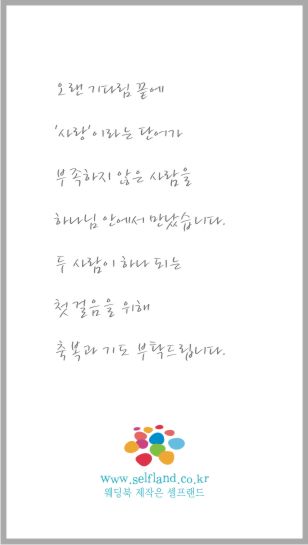 오랜 기다림 끝에
'사랑'이라는 단어가
부족하지 않은 사람을
하나님 안에서 만났습니다.
두 사람이 하나 되는
첫 걸음을 위해
축복과 기도 부탁드립니다.
www.selfland.co.kr
웨딩북 제작은 셀프랜드